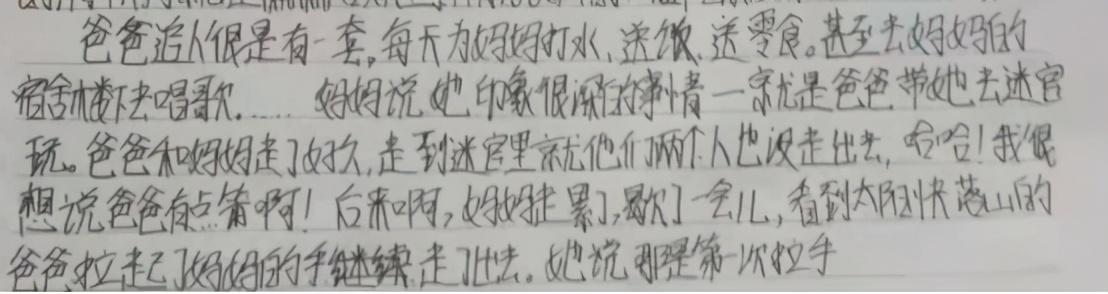 爸爸追人很是有一套,每天为妈妈打水、送饭、送零食。甚至去妈妈的
宿舍楼下去唱歌……妈妈说她印象很深的事情一就是爸爸带她去迷宫
玩。爸爸和妈妈走了好久,走到迷宫里就他们两个人也没走出去,哈哈!我很
想说爸爸有点笨啊!后来啊,妈妈走累了,歇了一会儿,看到太阳快落山的
爸爸拉起了妈妈的手继续走了出去。她说那是第一次拉手